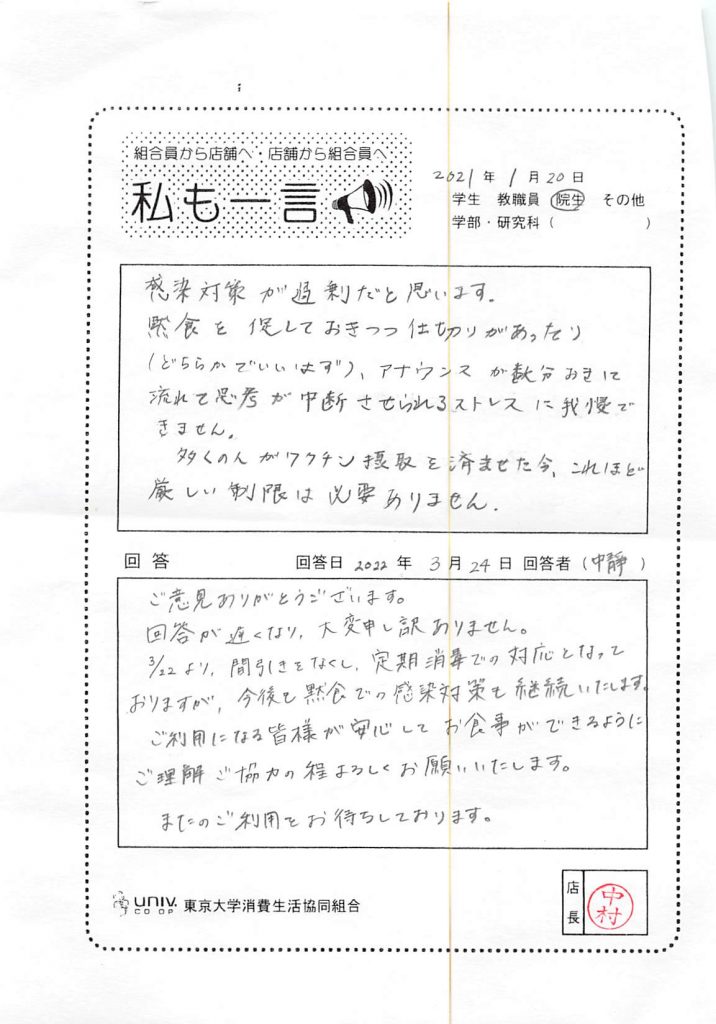 組合員から店舗へ・店舗から組合員へ
私も一言
2021年 1月20日
学生 教職員 院生 その他
学部・研究科( )
感染対策が過剰だと思います。
黙食を促しておきつつ仕切りがあったり
(どちらかでいいはず)、アナウンスが数分おきに
流れて思考が中断させられるストレスに我慢で
きません。
多くの人がワクチン摂取を済ませた今、これほど
厳しい制限は必要ありません.
回答 回答日 2022年 3月24日 回答者(中静)
ご意見ありがとうございます。
回答が遅くなり、大変申し訳ありません。
3/22より、間引きをなくし、定期消毒での対応となって
おりますが、今後も黙食での感染対策も継続いたします。
ご利用になる皆様が安心してお食事ができるように
ご理解ご協力の程よろしくお願いいたします。
またのご利用をお待ちしております。
UNIV. CO-OP 東京大学消費生活協同組合
店長 中村